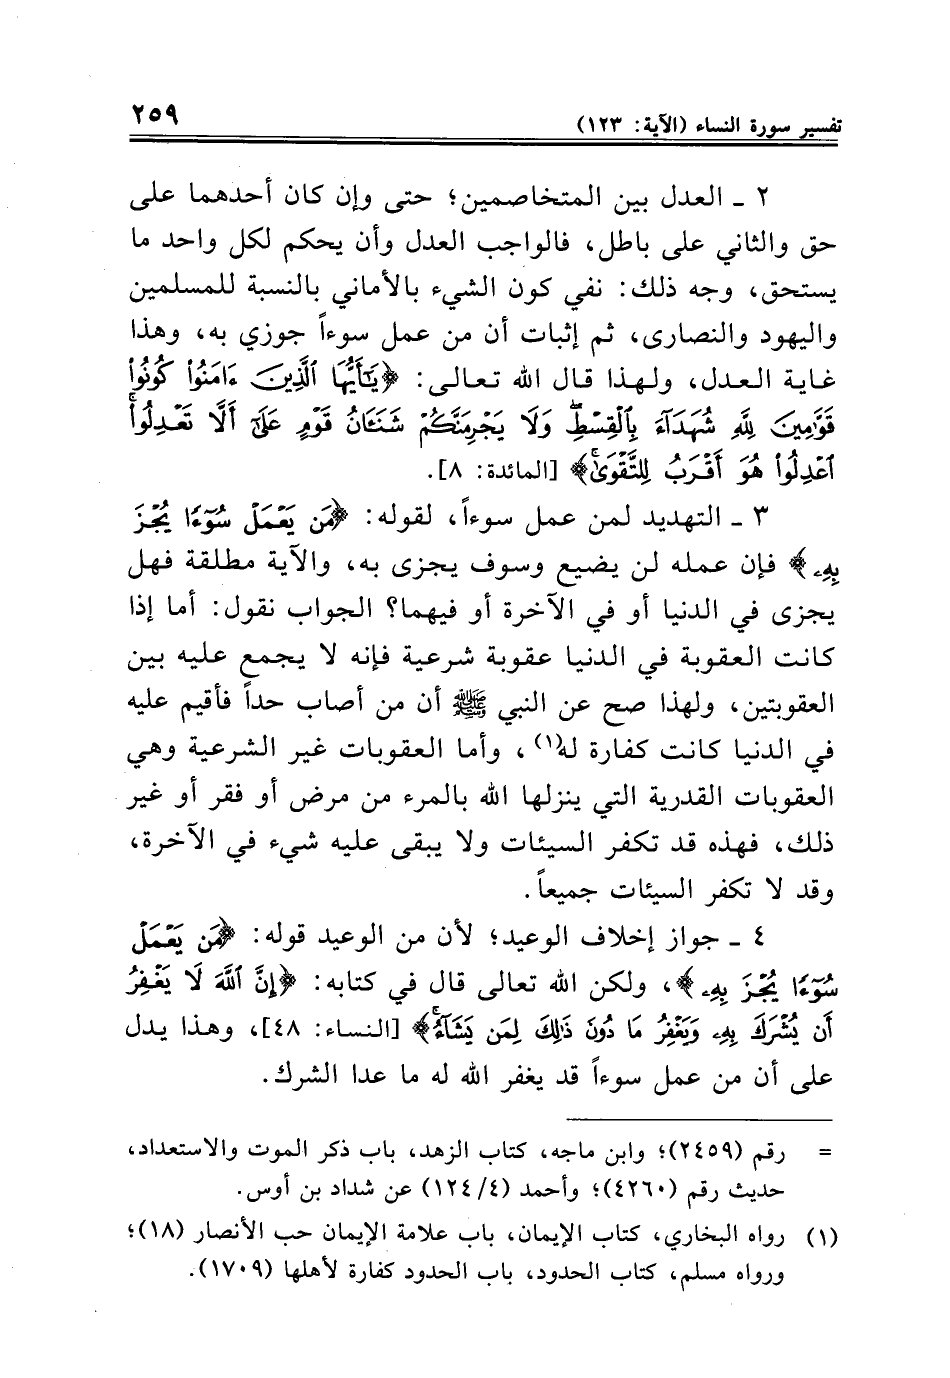 تفسير سورة النساء (الآية: ١٢٣) ٢٥٩
٢ ـ العدل بين المتخاصمين؛ حتى وإن كان أحدهما على
حق والثاني على باطل، فالواجب العدل وأن يحكم لكل واحد ما
يستحق، وجه ذلك: نفي كون الشيء بالأماني بالنسبة للمسلمين
واليهود والنصارى، ثم إثبات أن من عمل سوءاً جوزي به، وهذا
غاية العدل، ولهذا قال الله تعالى: ﴿يَـٰٓأَيُّهَا ٱلَّذِينَ ءَامَنُوا۟ كُونُوا۟
قَوَّٰمِينَ لِلَّهِ شُهَدَآءَ بِٱلْقِسْطِۖ وَلَا يَجْرِمَنَّكُمْ شَنَـَٔانُ قَوْمٍ عَلَىٰٓ أَلَّا تَعْدِلُوا۟ۚ
ٱعْدِلُوا۟ هُوَ أَقْرَبُ لِلتَّقْوَىٰۚ﴾ [المائدة: ٨].
٣ ـ التهديد لمن عمل سوءاً، لقوله: ﴿مَن يَعْمَلْ سُوٓءًا يُجْزَ
بِهِۦ﴾ فإن عمله لن يضيع وسوف يجزى به، والآية مطلقة فهل
يجزى في الدنيا أو في الآخرة أو فيهما؟ الجواب نقول: أما إذا
كانت العقوبة في الدنيا عقوبة شرعية فإنه لا يجمع عليه بين
العقوبتين، ولهذا صح عن النبي ﷺ أن من أصاب حداً فأقيم عليه
في الدنيا كانت كفارة له(١)، وأما العقوبات غير الشرعية وهي
العقوبات القدرية التي ينزلها الله بالمرء من مرض أو فقر أو غير
ذلك، فهذه قد تكفر السيئات ولا يبقى عليه شيء في الآخرة،
وقد لا تكفر السيئات جميعاً.
٤ ـ جواز إخلاف الوعيد؛ لأن من الوعيد قوله: ﴿مَن يَعْمَلْ
سُوٓءًا يُجْزَ بِهِۦ﴾، ولكن الله تعالى قال في كتابه: ﴿إِنَّ ٱللَّهَ لَا يَغْفِرُ
أَن يُشْرَكَ بِهِۦ وَيَغْفِرُ مَا دُونَ ذَٰلِكَ لِمَن يَشَآءُۚ﴾ [النساء: ٤٨]، وهذا يدل
على أن من عمل سوءاً قد يغفر الله له ما عدا الشرك.
= رقم (٢٤٥٩)؛ وابن ماجه، كتاب الزهد، باب ذكر الموت والاستعداد،
حديث رقم (٤٢٦٠)؛ وأحمد (٤/ ١٢٤) عن شداد بن أوس.
(١) رواه البخاري، كتاب الإيمان، باب علامة الإيمان حب الأنصار (١٨)؛
ورواه مسلم، كتاب الحدود، باب الحدود كفارة لأهلها (١٧٠٩).